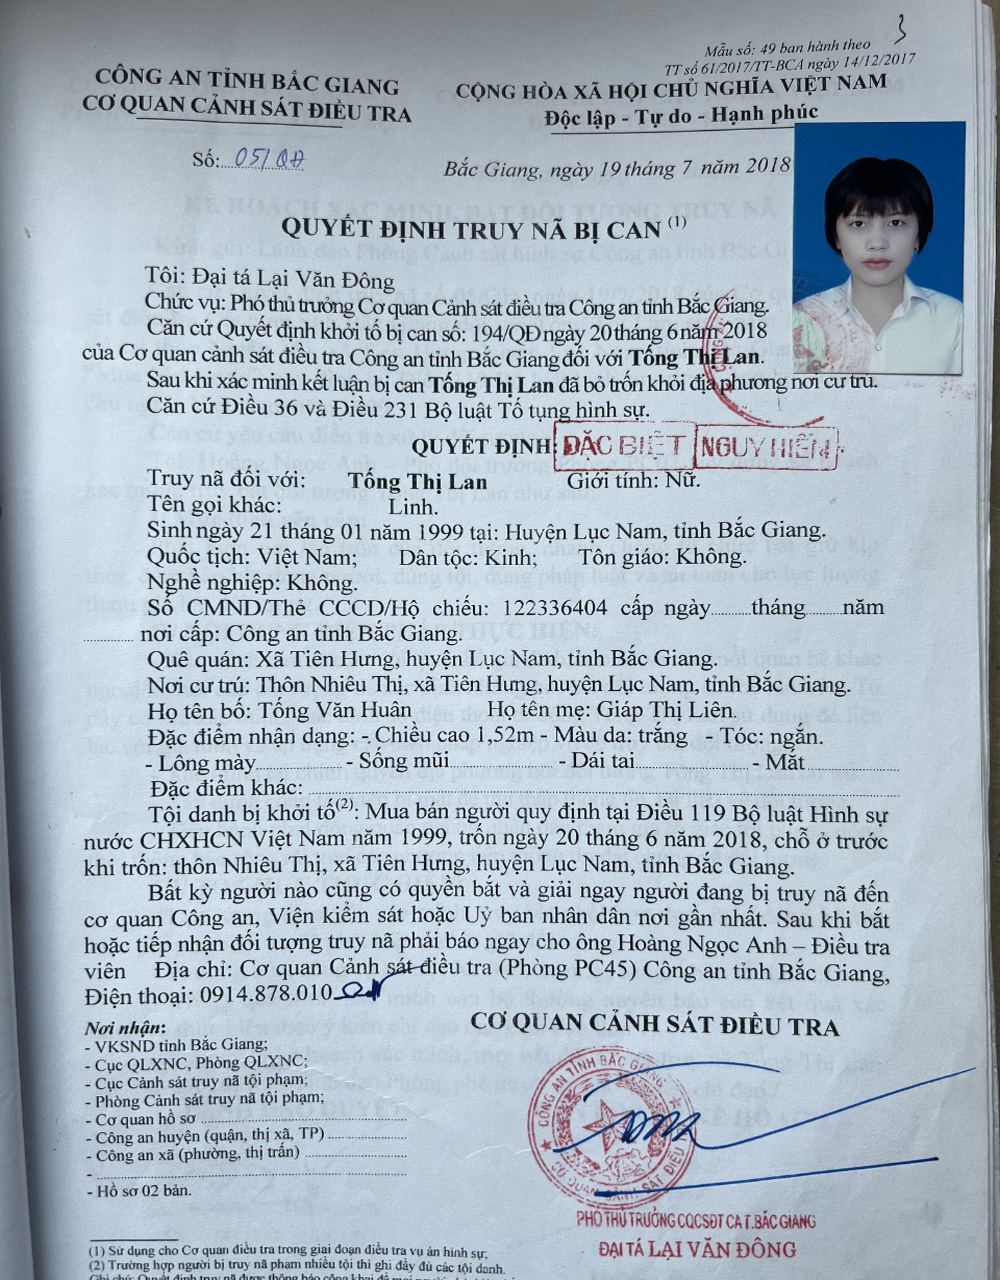 3
Mẫu số: 49 ban hành theo
TT số 61/2017/TT-BCA ngày 14/12/2017
CÔNG AN TỈNH BẮC GIANG
CƠ QUAN CẢNH SÁT ĐIỀU TRA
CỘNG HÒA XÃ HỘI CHỦ NGHĨA VIỆT NAM
Độc lập - Tự do - Hạnh phúc
Số: 05/QĐ
Bắc Giang, ngày 19 tháng 7 năm 2018
QUYẾT ĐỊNH TRUY NÃ BỊ CAN (1)
Tôi: Đại tá Lại Văn Đông
Chức vụ: Phó thủ trưởng Cơ quan Cảnh sát điều tra Công an tỉnh Bắc Giang.
Căn cứ Quyết định khởi tố bị can số: 194/QĐ ngày 20 tháng 6 năm 2018
của Cơ quan cảnh sát điều tra Công an tỉnh Bắc Giang đối với Tống Thị Lan.
Sau khi xác minh kết luận bị can Tống Thị Lan đã bỏ trốn khỏi địa phương nơi cư trú.
Căn cứ Điều 36 và Điều 231 Bộ luật Tố tụng hình sự.
QUYẾT ĐỊNH: ĐẶC BIỆT NGUY HIỂM
Truy nã đối với: Tống Thị Lan Giới tính: Nữ.
Tên gọi khác: Linh.
Sinh ngày 21 tháng 01 năm 1999 tại: Huyện Lục Nam, tỉnh Bắc Giang.
Quốc tịch: Việt Nam; Dân tộc: Kinh; Tôn giáo: Không.
Nghề nghiệp: Không.
Số CMND/Thẻ CCCD/Hộ chiếu: 122336404 cấp ngày..........tháng.........năm
............ nơi cấp: Công an tỉnh Bắc Giang.
Quê quán: Xã Tiên Hưng, huyện Lục Nam, tỉnh Bắc Giang.
Nơi cư trú: Thôn Nhiêu Thị, xã Tiên Hưng, huyện Lục Nam, tỉnh Bắc Giang.
Họ tên bố: Tống Văn Huân Họ tên mẹ: Giáp Thị Liên.
Đặc điểm nhân dạng: - Chiều cao 1,52m - Màu da: trắng - Tóc: ngắn.
- Lông mày.................... - Sống mũi........................ - Dái tai........................ - Mắt....................
Đặc điểm khác: ....................
Tội danh bị khởi tố(2): Mua bán người quy định tại Điều 119 Bộ luật Hình sự
nước CHXHCN Việt Nam năm 1999, trốn ngày 20 tháng 6 năm 2018, chỗ ở trước
khi trốn: thôn Nhiêu Thị, xã Tiên Hưng, huyện Lục Nam, tỉnh Bắc Giang.
Bất kỳ người nào cũng có quyền bắt và giải ngay người đang bị truy nã đến
cơ quan Công an, Viện kiểm sát hoặc Uỷ ban nhân dân nơi gần nhất. Sau khi bắt
hoặc tiếp nhận đối tượng truy nã phải báo ngay cho ông Hoàng Ngọc Anh – Điều tra
viên Địa chỉ: Cơ quan Cảnh sát điều tra (Phòng PC45) Công an tỉnh Bắc Giang,
Điện thoại: 0914.878.010
Nơi nhận:
- VKSND tỉnh Bắc Giang;
- Cục QLXNC, Phòng QLXNC;
- Cục Cảnh sát truy nã tội phạm;
- Phòng Cảnh sát truy nã tội phạm;
- Cơ quan hồ sơ ....................
- Công an huyện (quận, thị xã, TP) ....................
- Công an xã (phường, thị trấn) ....................
- ....................
- Hồ sơ 02 bản.
CƠ QUAN CẢNH SÁT ĐIỀU TRA
CÔNG AN TỈNH BẮC GIANG
CƠ QUAN CẢNH SÁT ĐIỀU
PHÓ THỦ TRƯỞNG CQCSĐT CA T.BẮC GIANG
ĐẠI TÁ LẠI VĂN ĐÔNG
(1) Sử dụng cho Cơ quan điều tra trong giai đoạn điều tra vụ án hình sự;
(2) Trường hợp người bị truy nã phạm nhiều tội thì ghi đầy đủ các tội danh.
Ghi chú: Quyết định truy nã được thông báo công khai để mọi người